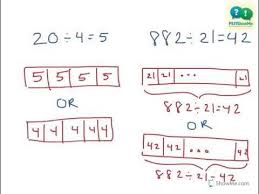 20÷4=5
882÷21=42
5 5 5 5
21 21 ... 21
882÷21=42
OR
OR
4 4 4 4 4
42 42 ... 42
882÷21=42
ShowMe.com